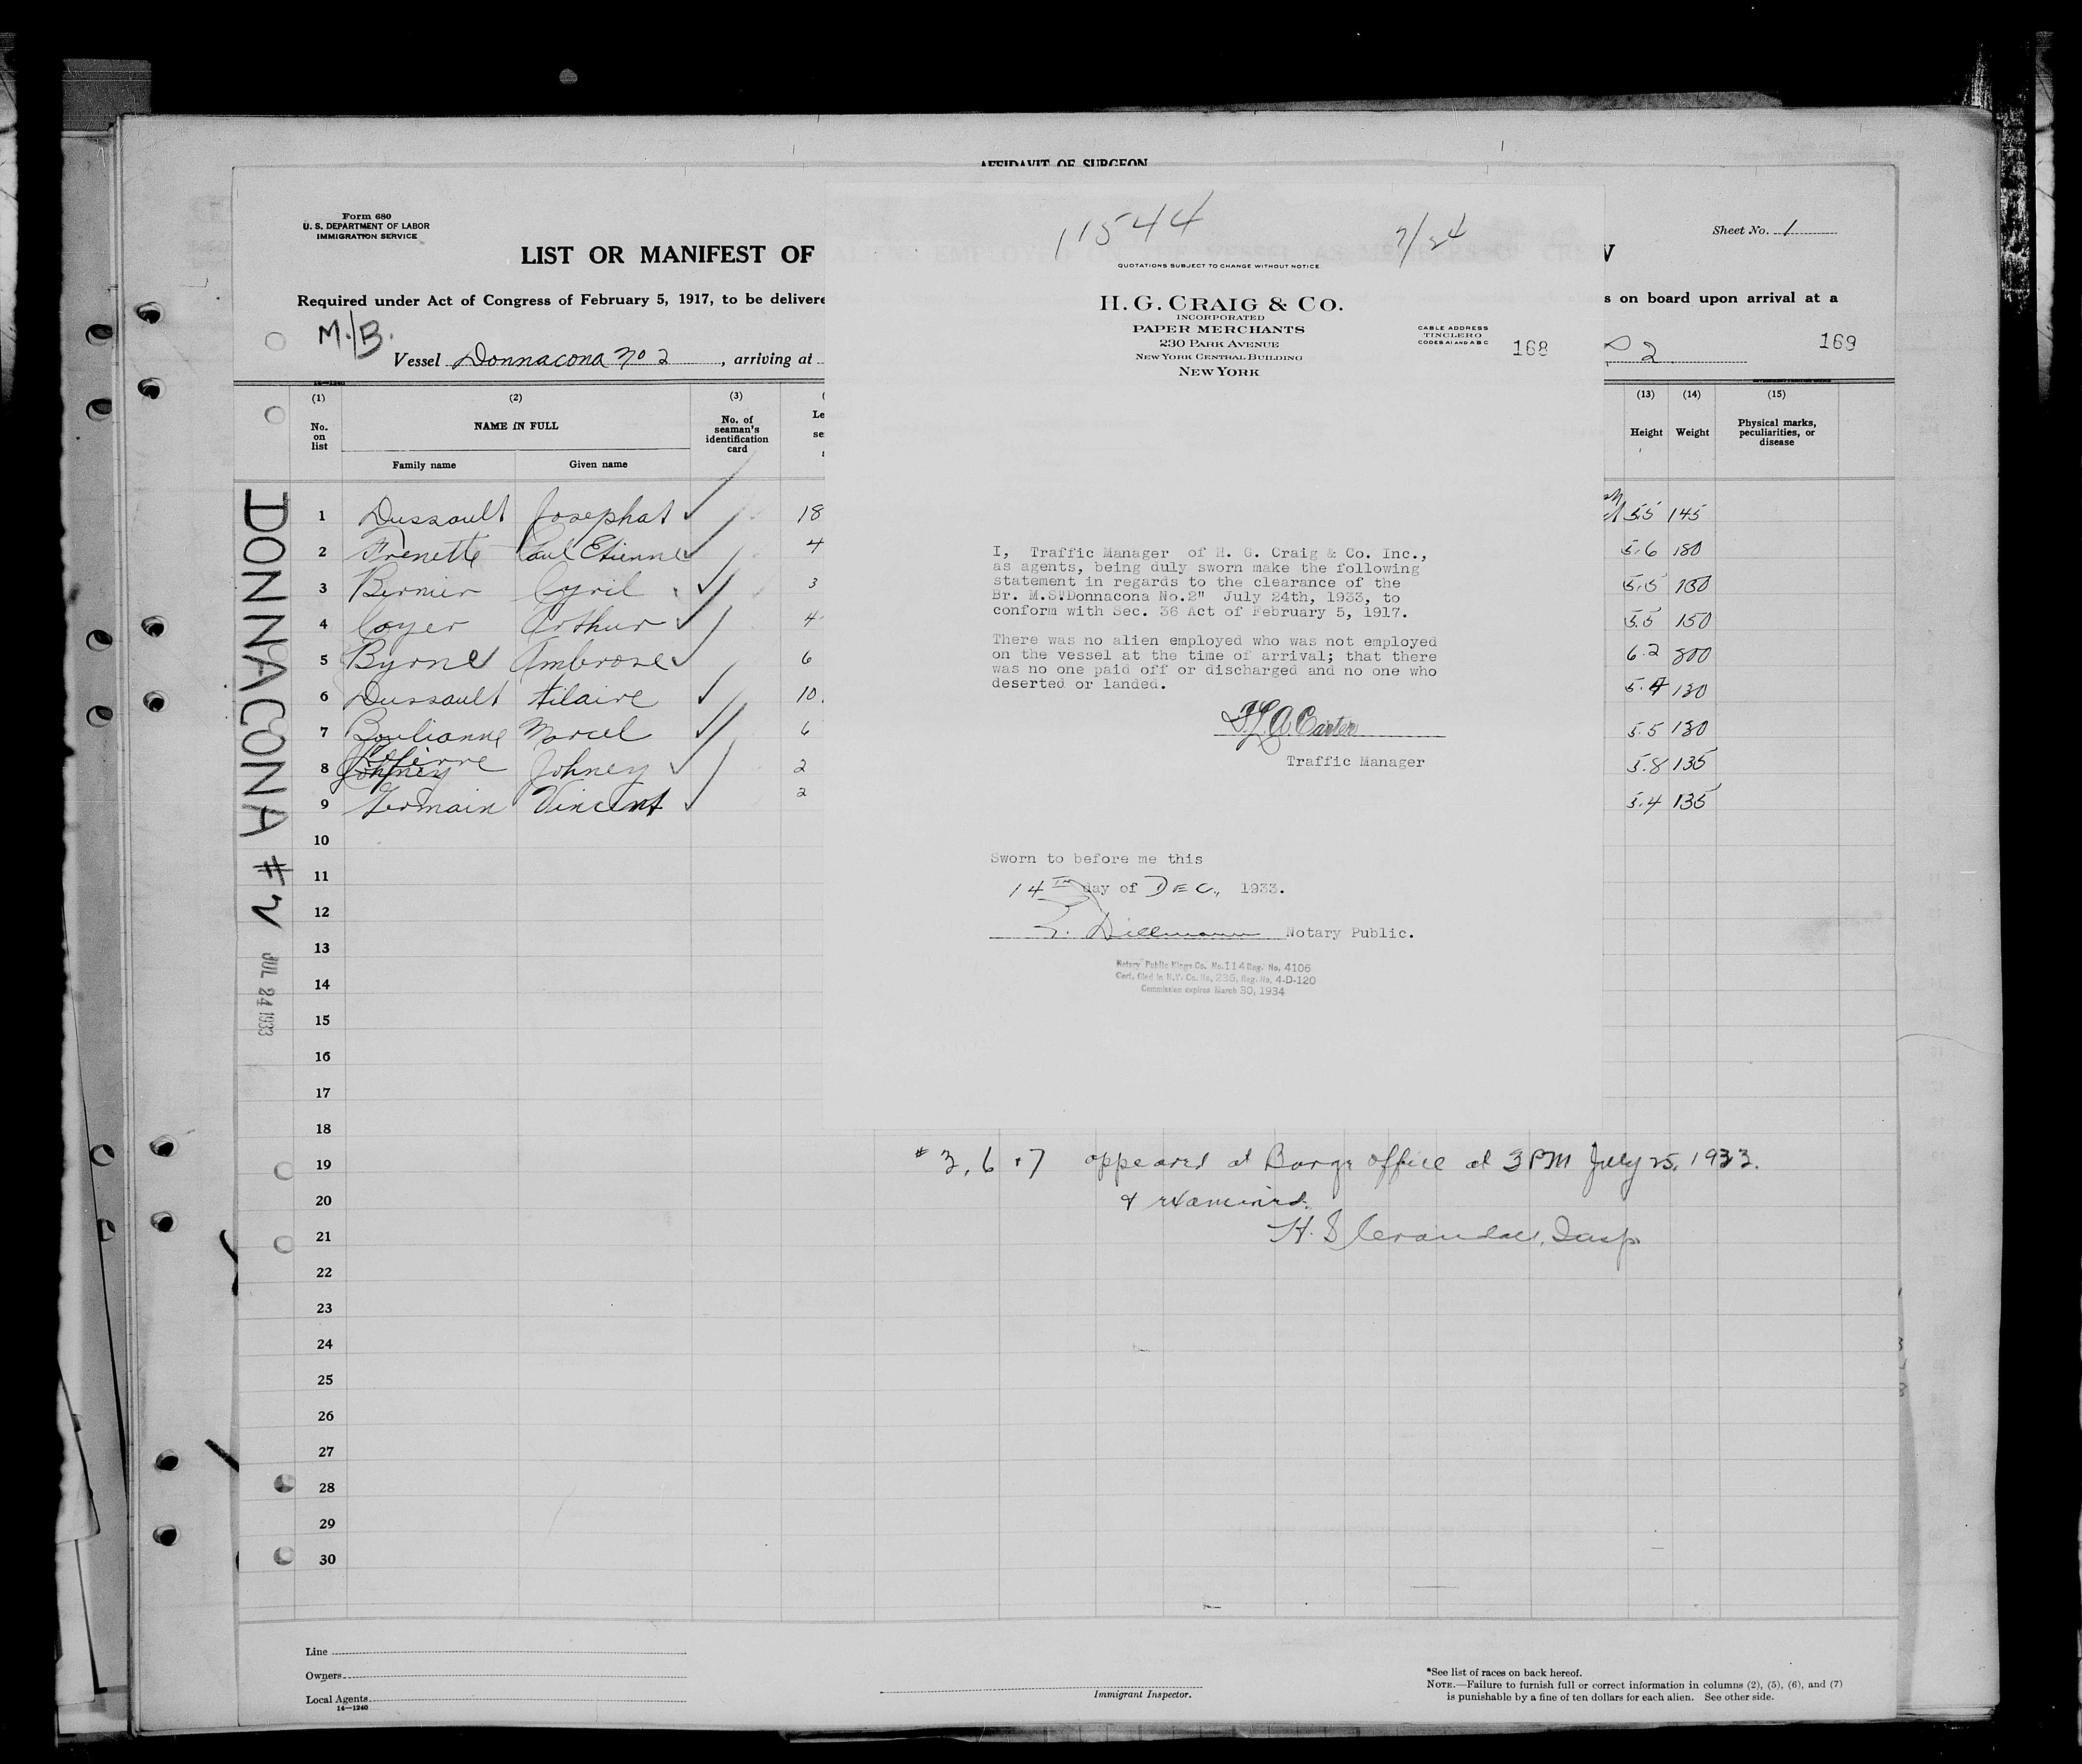 AFFIDAVIT OF SURGEON
Form 680
U. S. DEPARTMENT OF LABOR
IMMIGRATION SERVICE
Sheet No. 1
LIST OR MANIFEST OF
Required under Act of Congress of February 5, 1917, to be delivere
s on board upon arrival at a
M/B.
Vessel Donnacona No 2, arriving at
2
169
11544
7/24
QUOTATIONS SUBJECT TO CHANGE WITHOUT NOTICE
H. G. CRAIG & CO.
INCORPORATED
PAPER MERCHANTS
230 PARK AVENUE
NEW YORK CENTRAL BUILDING
NEW YORK
CABLE ADDRESS
TINCLERO
CODES A1 AND A B C
168
I, Traffic Manager of H. G. Craig & Co. Inc.,
as agents, being duly sworn make the following
statement in regards to the clearance of the
Br. M.S."Donnacona No.2" July 24th, 1933, to
conform with Sec. 36 Act of February 5, 1917.
There was no alien employed who was not employed
on the vessel at the time of arrival; that there
was no one paid off or discharged and no one who
deserted or landed.
Carter
Traffic Manager
Sworn to before me this
14TH day of DEC., 1933.
Dillmann Notary Public.
Notary Public Kings Co. No.114 Reg. No. 4106
Cert. filed in N.Y. Co. No. 236, Reg. No. 4-D-120
Commission expires March 30, 1934
(1) (2) (3) (13) (14) (15)
No. on list NAME IN FULL No. of seaman's identification card Height Weight Physical marks, peculiarities, or disease
Family name Given name
1 Dussault Josephat 18 5.5 145
2 Frenette Paul Etienne 4 5.6 180
3 Bernier Cyril 3 5.5 130
4 Coyer Arthur 4 5.5 150
5 Byrne Ambrose 6 6.2 200
6 Dussault Hilaire 10 5.4 130
7 Boulianne Marcel 6 5.5 130
8 Johney 2 5.8 135
9 Germain Vincent 2 5.4 135
10
11
12
13
14
15
16
17
18
19
20
21
22
23
24
25
26
27
28
29
30
DONNACONA #2
JUL 24 1933
# 3, 6 & 7 appeared at Barge office at 3 PM July 25, 1933.
& examined.
H. S. Crandall, Insp
Line
Owners
Local Agents
14—1240
Immigrant Inspector.
*See list of races on back hereof.
NOTE.—Failure to furnish full or correct information in columns (2), (5), (6), and (7)
is punishable by a fine of ten dollars for each alien. See other side.